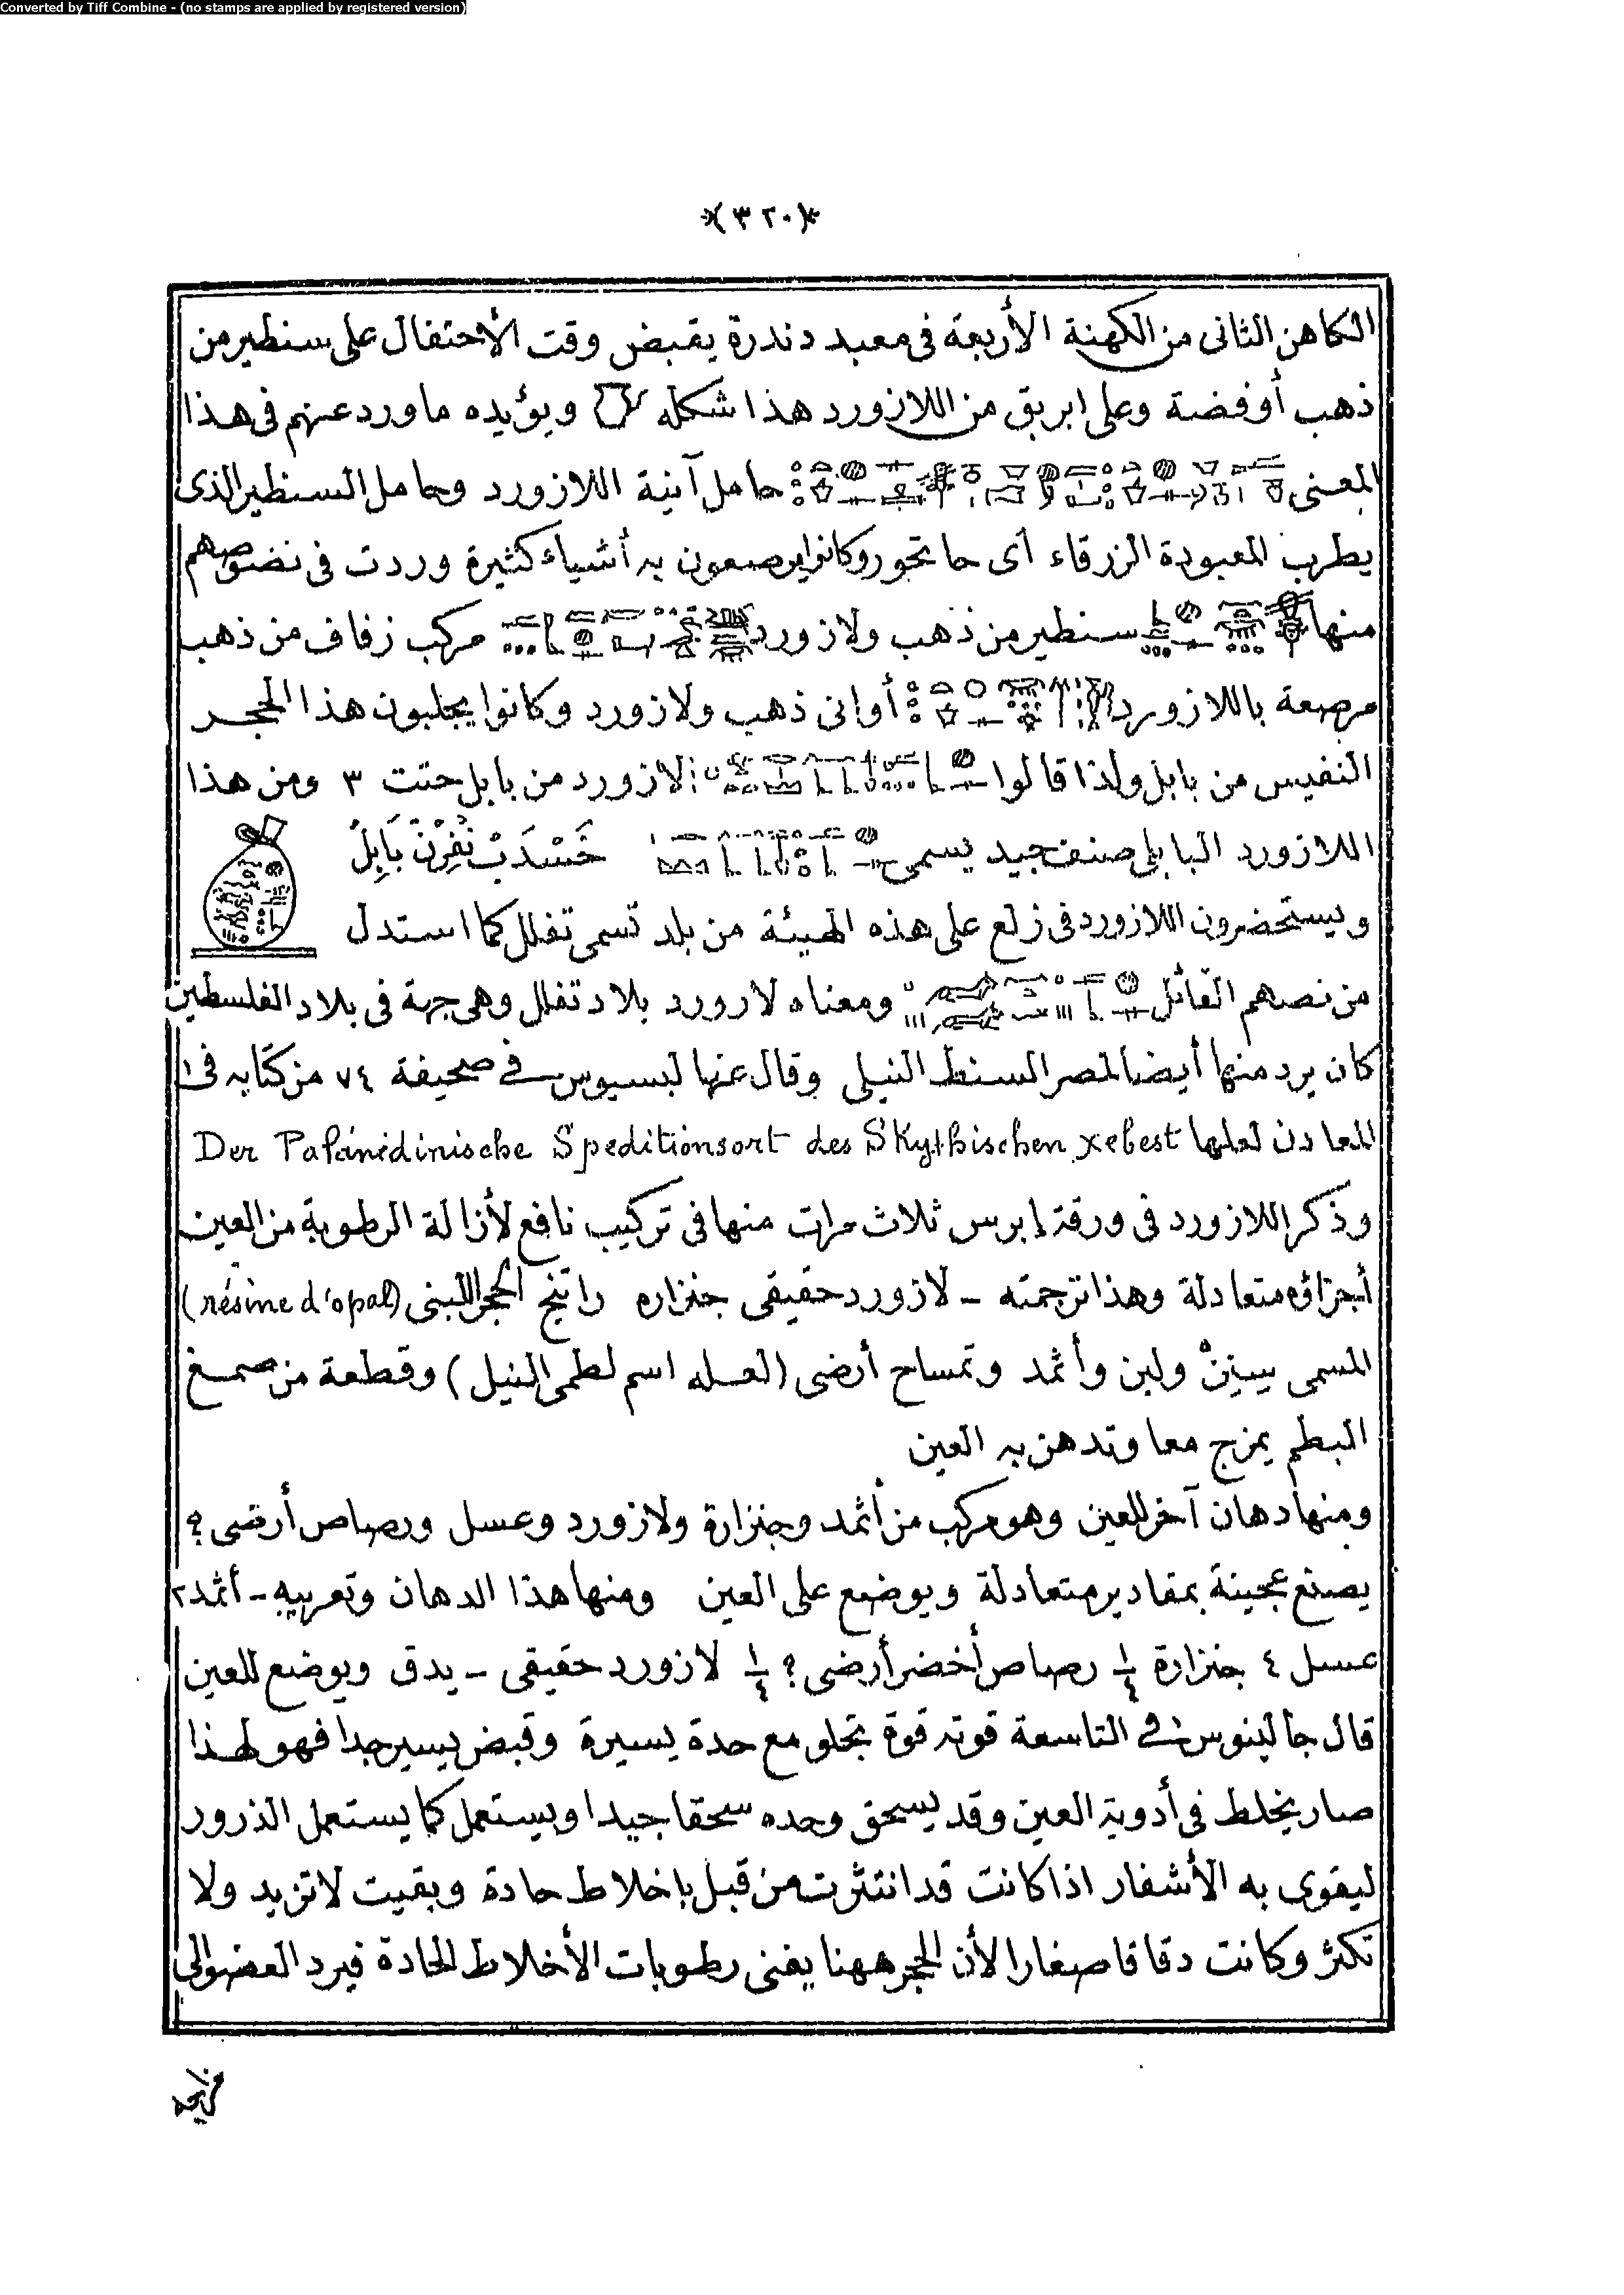 Converted by Tiff Combine - (no stamps are applied by registered version)
(٣٢٠)
الكاهن الثانى من الكهنة الأربعة فى معبد دندرة يقبض وقت الأحتفال على سنطير من
ذهب أو فضة وعلى ابريق من اللازورد هذا شكله ويؤيده ماورد عنهم فى هذا
المعنى حامل آنية اللازورد وحامل السنطير الذى
يطرب المعبودة الزرقاء أى حاتحور وكانوا يرصعون به أشياء كثيرة وردت فى نصوصهم
منها سنطير من ذهب ولازورد مركب زفاف من ذهب
مرصعة باللازورد أوانى ذهب ولازورد وكانوا يجلبون هذا الحجر
النفيس من بابل ولذا قالوا لازورد من بابل حتت ٣ ومن هذا
اللازورد البابلى صنف جيد يسمى خَسْدَبْ نُفِرْنْ بَابِلُ
ويستحضرون اللازورد فى زلع على هذه الهيئة من بلد تسمى تفلل كما استدل
من نصهم القائل ومعناه لازورد بلاد تفلل وهى جهة فى بلاد الفلسطين
كان يرد منها أيضا لمصر السنط النيلى وقال عنها لبسيوس فى صحيفة ٧٤ من كتابه فى
المعادن لعلها Der Speditionsort des Skythischen xebest
وذكر اللازورد فى ورقة إبرس ثلاث مرات منها فى تركيب نافع لأزالة الرطوبة من العين
أجزاؤه متعادلة وهذا ترجمته - لازورد حقيقى جنزاره راتنج الحجر اللبنى (résine d'opal)
المسمى ولبن وأثمد وتمساح أرضى (لعله اسم لطمى النيل) وقطعة من صمغ
البطم يمزج معا وتدهن به العين
ومنها دهان آخر للعين وهو مركب من أثمد وجنزارة ولازورد وعسل ورصاص أرضى ؟
يصنع عجينة بمقادير متعادلة ويوضع على العين ومنها هذا الدهان وتعريبه - أثمد ٢
عسل ٤ جنزارة ١/٤ رصاص أخضر أرضى ؟ ١/٤ لازورد حقيقى - يدق ويوضع للعين
قال جالينوس فى التاسعة قوته قوة تجلو مع حدة يسيرة وقبض يسير جدا فهو لهذا
صار يخلط فى أدوية العين وقد يسحق وحده سحقا جيدا ويستعمل كما يستعمل الذرور
ليقوى به الأشفار اذا كانت قد انتثرت من قبل باخلاط حادة وبقيت لا تزيد ولا
تكثر وكانت دقاقا صغارا لأن الحجر ههنا يفنى رطوبات الأخلاط الحادة فيرد العضو الى